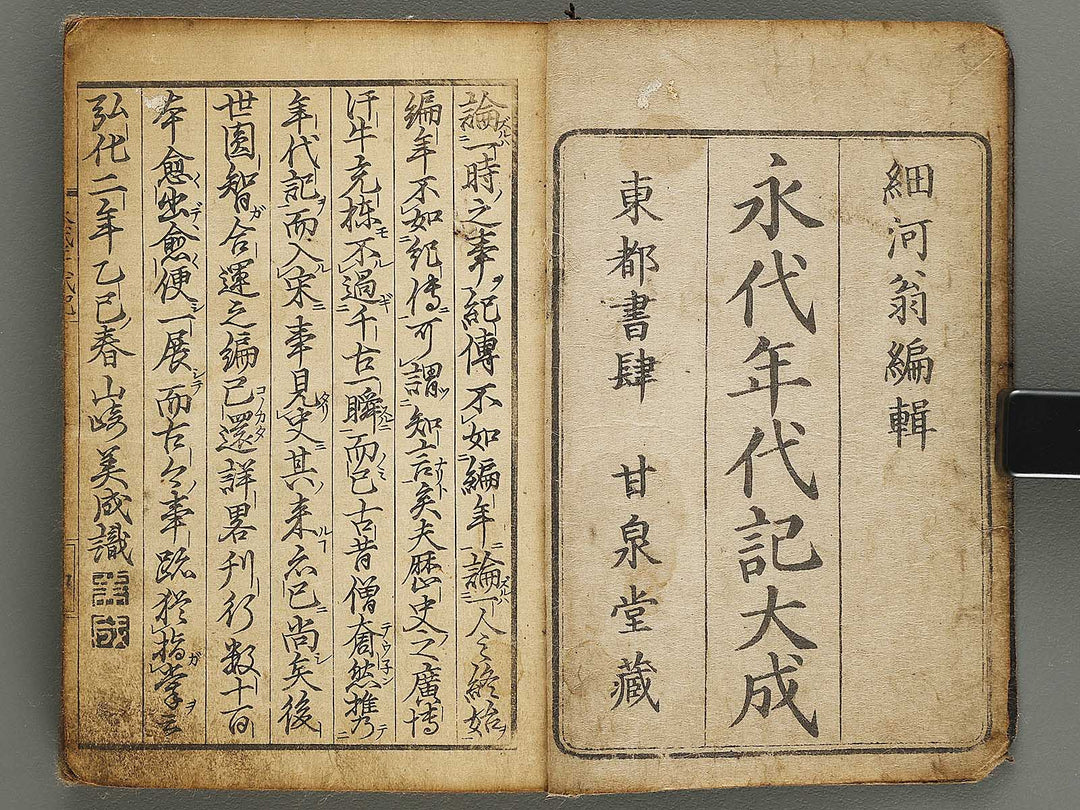 細河翁編輯
永代年代記大成
東都書肆 甘泉堂藏
論一時之事紀傳不如編年論一人之終始
編年不如紀傳可謂知言矣夫歴史之廣博
汗牛充棟不過千古一瞬而已古昔僧奝然携乃
年代記而入宋事見史其来亦已尚矣後
世圓智合運之編已還詳畧刊行数十百
本愈出愈便一展而古今事跡猶指掌云
弘化二年乙巳春山崎美成識